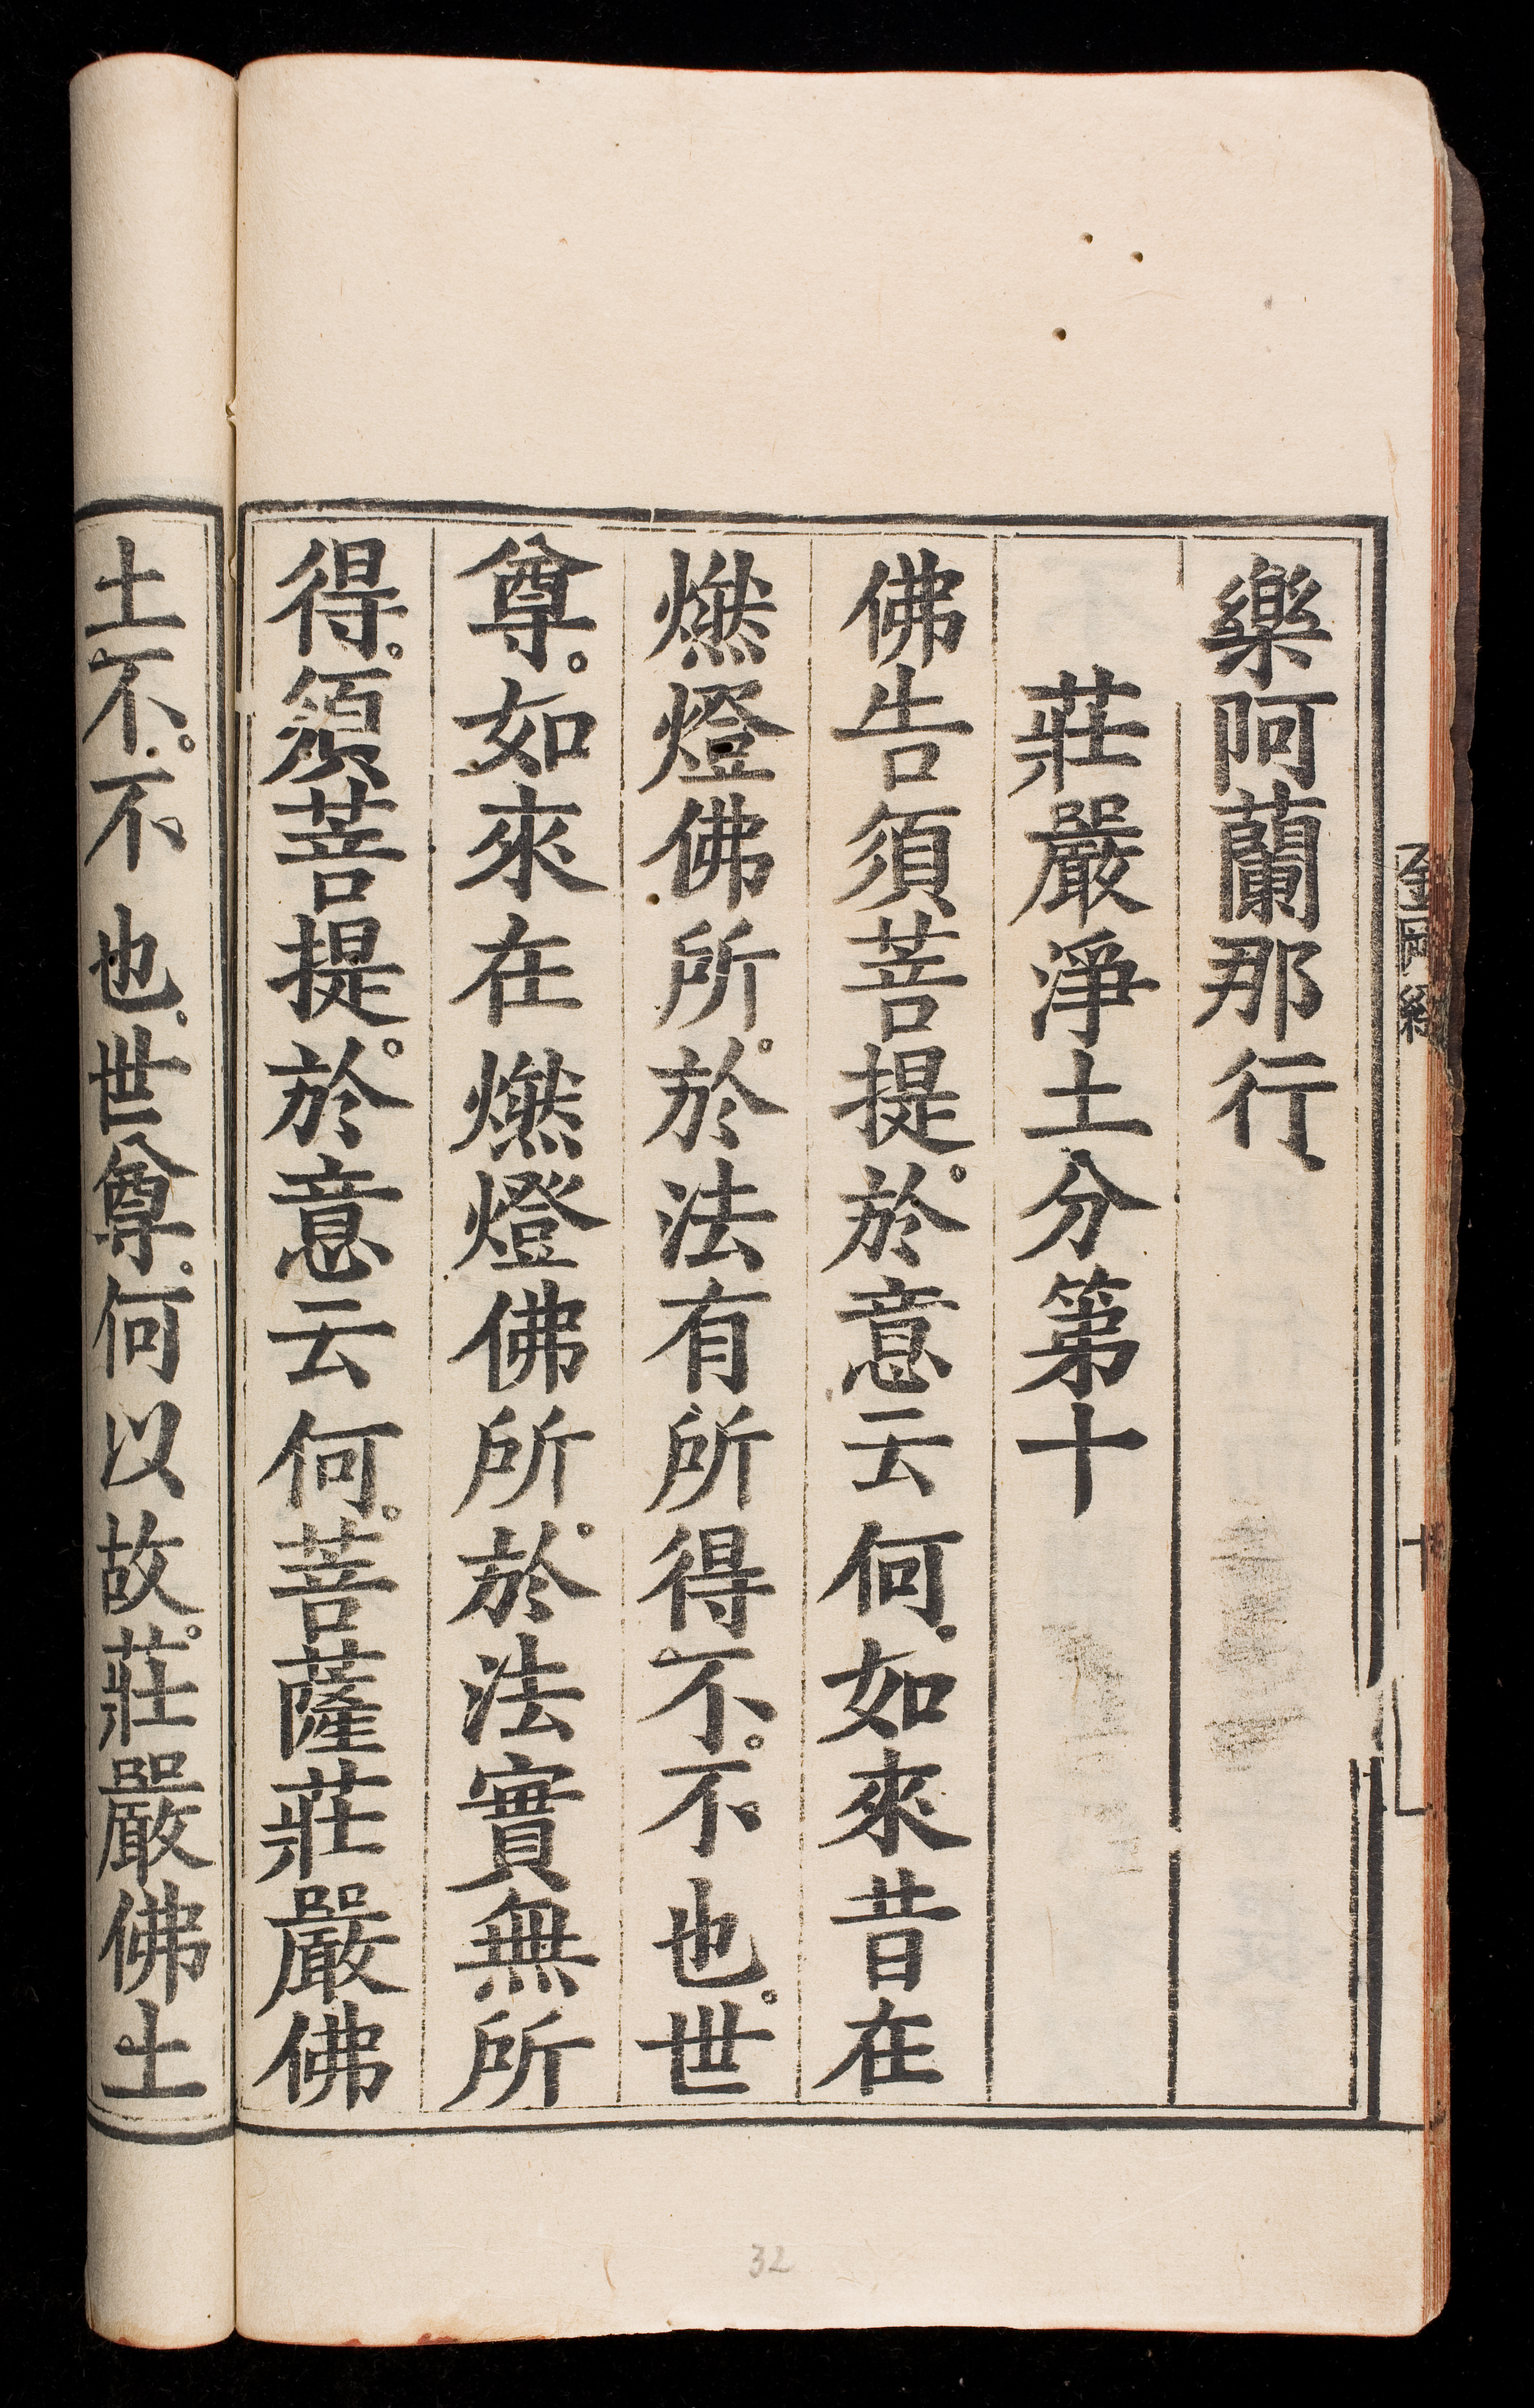 樂阿蘭那行
莊嚴淨土分第十
佛告須菩提。於意云何。如來昔在
燃燈佛所。於法有所得不。不也。世
尊。如來在燃燈佛所。於法實無所
得。須菩提。於意云何。菩薩莊嚴佛
土不。不也。世尊。何以故。莊嚴佛土
十
32